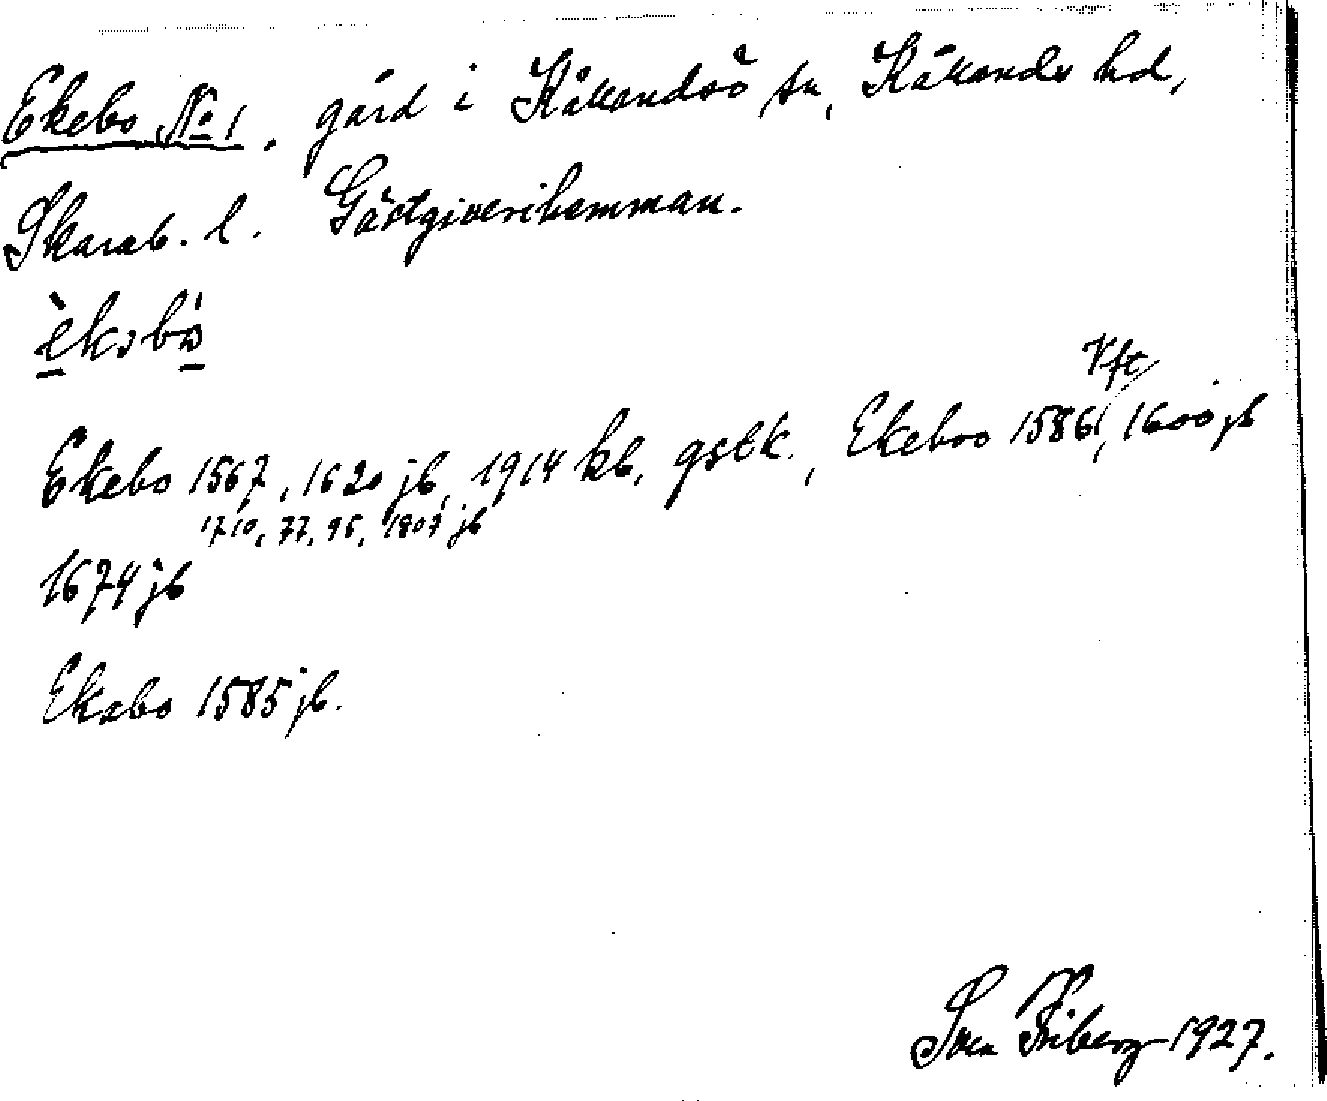 Ekebo No 1, gård i Kåkindsö sn, Kåkinds hd,
Skarab. l. Gästgiverihemman.
èkəbó
Vft
Ekebo 1567, 1620 jb, 1914 kb, gstk., Ekeboo 1586, 1600 jb
1710, 77, 95, 1807 jb
1674 jb
Ekabo 1585 jb.
Sven Friberg 1927.